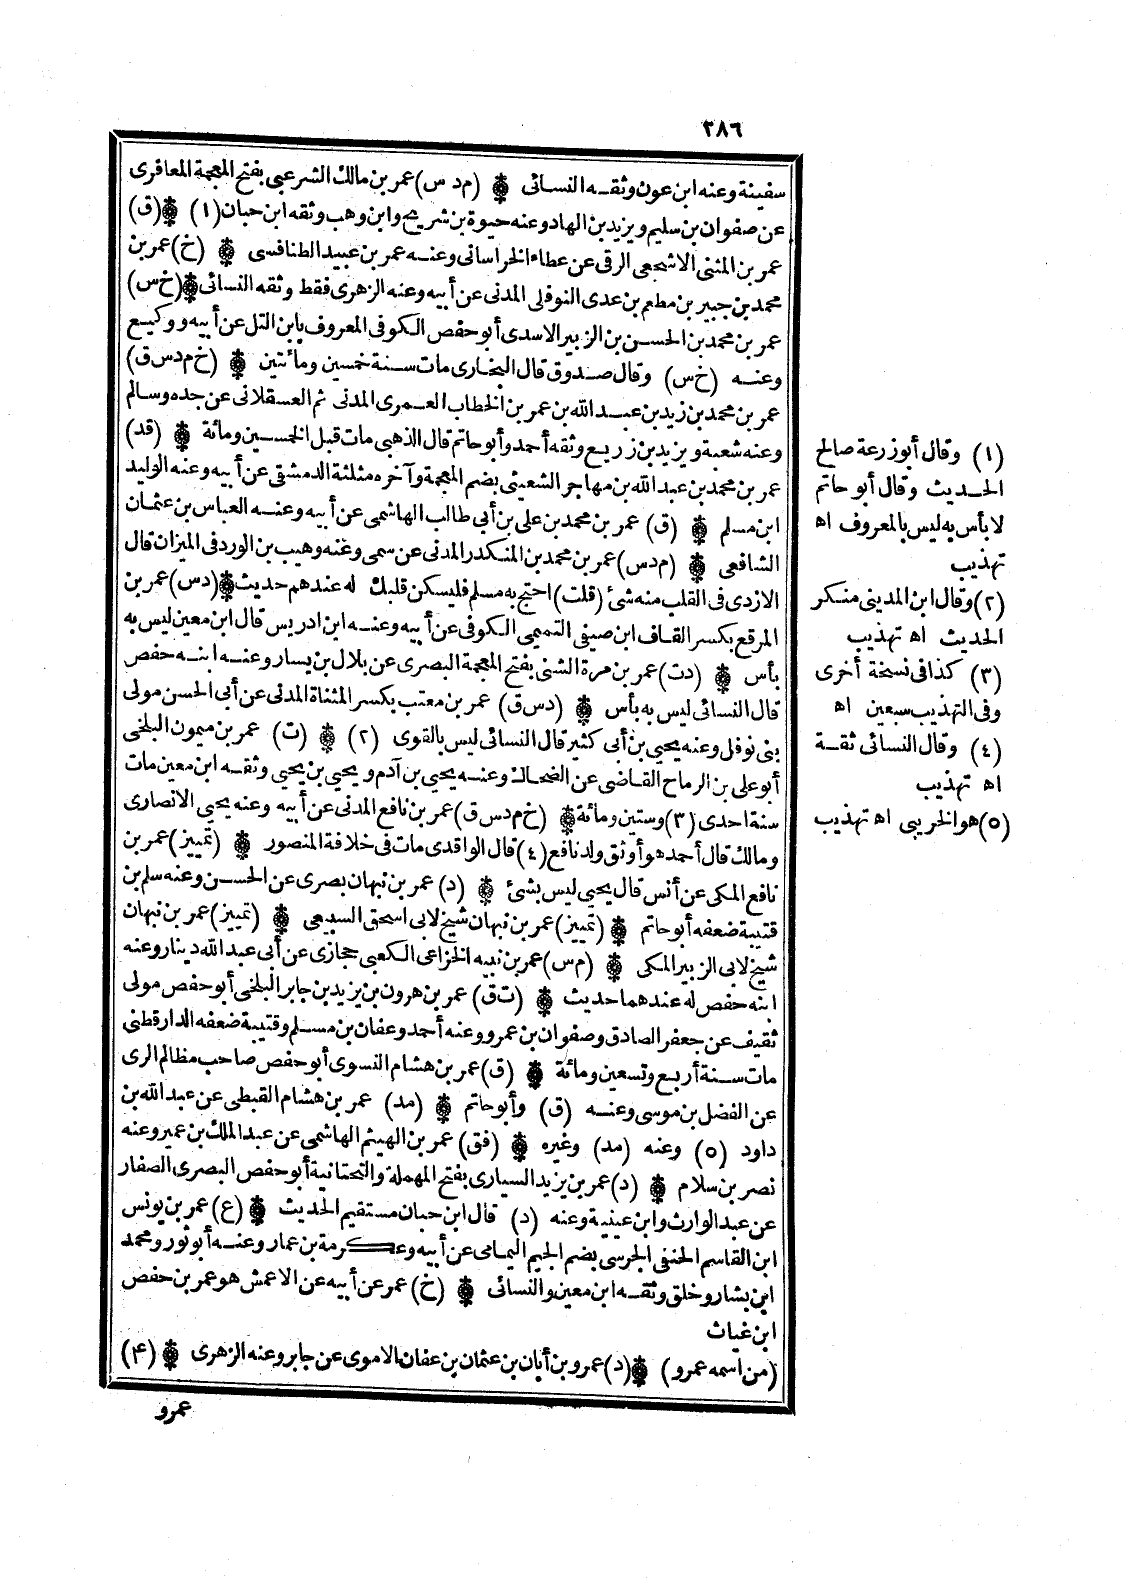 ٢٨٦
سفينة وعنه ابن عون وثقه النسائى ۞ (م د س) عمر بن مالك الشرعبى بفتح المعجمة المعافرى
عن صفوان بن سليم ويزيد بن الهاد وعنه حيوة بن شريح وابن وهب وثقه ابن حبان (١) ۞ (ق)
عمر بن المثنى الاشجعى الرقى عن عطاء الخراسانى وعنه عمر بن عبيد الطنافسى ۞ (خ) عمر بن
محمد بن جبير بن مطعم بن عدى النوفلى المدنى عن أبيه وعنه الزهرى فقط وثقه النسائى ۞ (خ س)
عمر بن محمد بن الحسن بن الزبير الاسدى أبو حفص الكوفى المعروف بابن التل عن أبيه ووكيع
وعنه (خ س) وقال صدوق قال البخارى مات سنة خمسين ومائتين ۞ (خ م د س ق)
عمر بن محمد بن زيد بن عبد الله بن عمر بن الخطاب العمرى المدنى ثم العسقلانى عن جده وسالم
وعنه شعبة ويزيد بن زريع وثقه أحمد وأبو حاتم قال الذهبى مات قبل الخمسين ومائة ۞ (قد)
عمر بن محمد بن عبد الله بن مهاجر الشعيثى بضم المعجمة وآخره مثلثة الدمشقى عن أبيه وعنه الوليد
ابن مسلم ۞ (ق) عمر بن محمد بن على بن أبى طالب الهاشمى عن أبيه وعنه العباس بن عثمان
الشافعى ۞ (م د س) عمر بن محمد بن المنكدر المدنى عن سمى وعنه وهيب بن الورد فى الميزان قال
الازدى فى القلب منه شئ (قلت) احتج به مسلم فليسكن قلبك له عندهم حديث ۞ (د س) عمر بن
المرقع بكسر القاف ابن صيفى التميمى الكوفى عن أبيه وعنه ابن ادريس قال ابن معين ليس به
بأس ۞ (د ت) عمر بن مرة الشنى بفتح المعجمة البصرى عن بلال بن يسار وعنه ابنه حفص
قال النسائى ليس به بأس ۞ (د س ق) عمر بن معتب بكسر المثناة المدنى عن أبى الحسن مولى
بنى نوفل وعنه يحيى بن أبى كثير قال النسائى ليس بالقوى (٢) ۞ (ت) عمر بن ميمون البلخى
أبو على بن الرماح القاضى عن الضحاك وعنه يحيى بن آدم ويحيى بن يحيى وثقه ابن معين مات
سنة احدى (٣) وستين ومائة ۞ (خ م د س ق) عمر بن نافع المدنى عن أبيه وعنه يحيى الانصارى
ومالك قال أحمد هو أوثق ولد نافع (٤) قال الواقدى مات فى خلافة المنصور ۞ (تمييز) عمر بن
نافع المكى عن أنس قال يحيى ليس بشئ ۞ (د) عمر بن نبهان بصرى عن الحسن وعنه سلم بن
قتيبة ضعفه أبو حاتم ۞ (تمييز) عمر بن نبهان شيخ لابى اسحق السبيعى ۞ (تمييز) عمر بن نبهان
شيخ لابى الزبير المكى ۞ (م س) عمر بن نبيه الخزاعى الكعبى حجازى عن أبى عبد الله دينار وعنه
ابنه حفص له عندهما حديث ۞ (ت ق) عمر بن هرون بن يزيد بن جابر البلخى أبو حفص مولى
ثقيف عن جعفر الصادق وصفوان بن عمرو وعنه أحمد وعفان بن مسلم وقتيبة ضعفه الدارقطنى
مات سنة أربع وتسعين ومائة ۞ (ق) عمر بن هشام النسوى أبو حفص صاحب مظالم الرى
عن الفضل بن موسى وعنه (ق) وأبو حاتم ۞ (مد) عمر بن هشام القبطى عن عبد الله بن
داود (٥) وعنه (مد) وغيره ۞ (فق) عمر بن الهيثم الهاشمى عن عبد الملك بن عمير وعنه
نصر بن سلام ۞ (د) عمر بن يزيد السيارى بفتح المهملة والتحتانية أبو حفص البصرى الصفار
عن عبد الوارث وابن عيينة وعنه (د) قال ابن حبان مستقيم الحديث ۞ (ع) عمر بن يونس
ابن القاسم الحنفى الجرسى بضم الجيم اليمامى عن أبيه وعكرمة بن عمار وعنه أبو ثور ومحمد
ابن بشار وخلق وثقه ابن معين والنسائى ۞ (خ) عمر عن أبيه عن الاعمش هو عمر بن حفص
ابن غياث
(من اسمه عمرو) ۞ (د) عمرو بن أبان بن عثمان بن عفان الاموى عن جابر وعنه الزهرى ۞ (۴)
عمرو
(١) وقال أبو زرعة صالح
الحديث وقال أبو حاتم
لا بأس به ليس بالمعروف اه
تهذيب
(٢) وقال ابن المدينى منكر
الحديث اه تهذيب
(٣) كذا فى نسخة أخرى
وفى التهذيب سبعين اه
(٤) وقال النسائى ثقة
اه تهذيب
(٥) هو الخريبى اه تهذيب